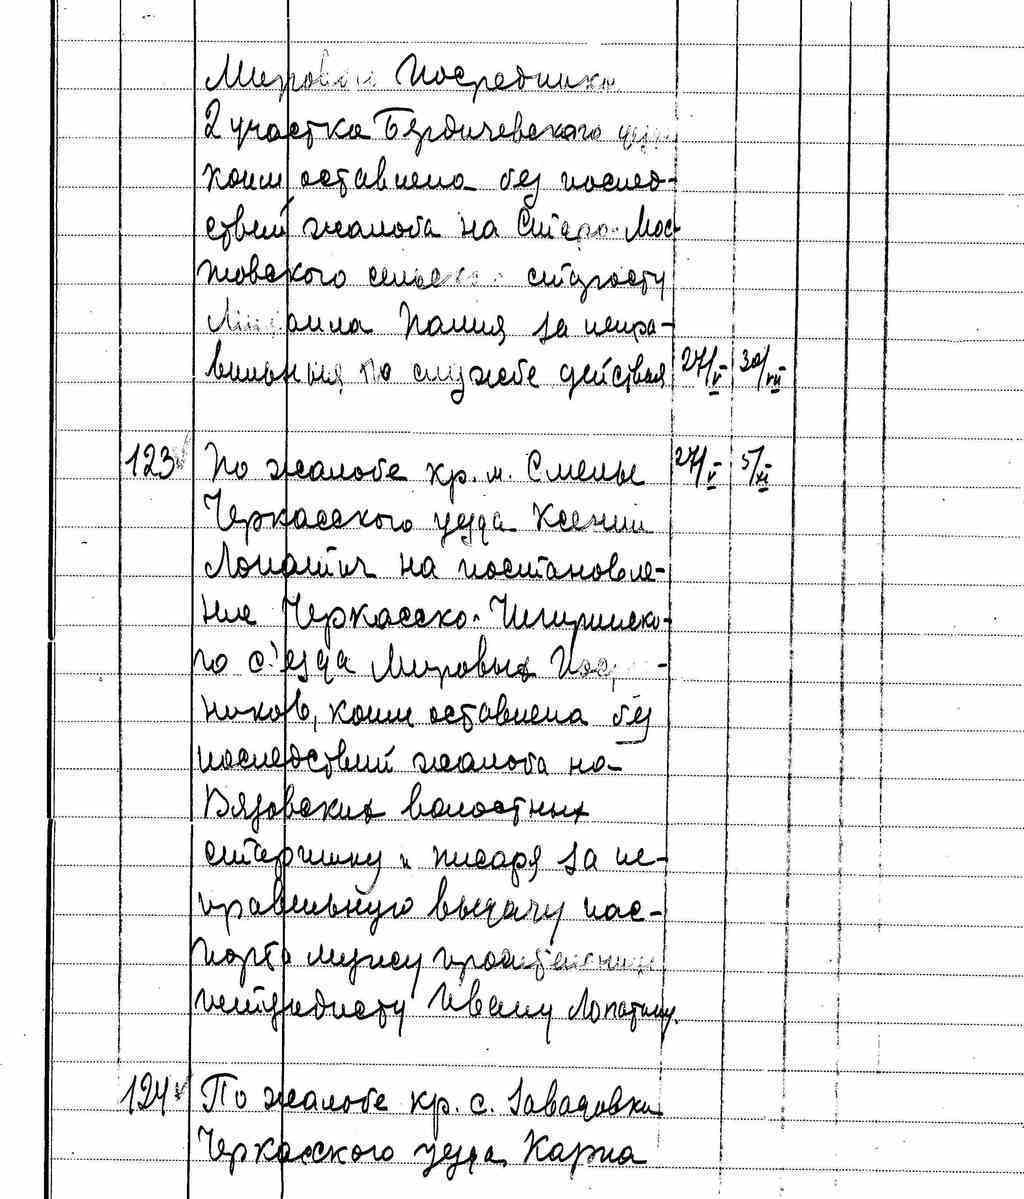 Мирового Посредника
2 участка Бердичевского уезда
коим оставлена без послед-
ствий жалоба на Старо-Мос-
товского сельского старосту
Михаила Палия за непра-
вильныя по службе действия 27/V 30/VII
123 По жалобе кр. м. Смелы 27/V 5/XI
Черкасского уезда Ксении
Лопатич на постановле-
ние Черкасско-Чигиринско-
го с'езда Мировых Посред-
ников, коим оставлена без
последствий жалоба на
Вязовских волостных
старшину и писаря за не-
правильную выдачу пас-
порта мужу просительницы
штундисту Ивану Лопатину.
124 По жалобе кр. с. Завадовки
Черкасского уезда Карпа